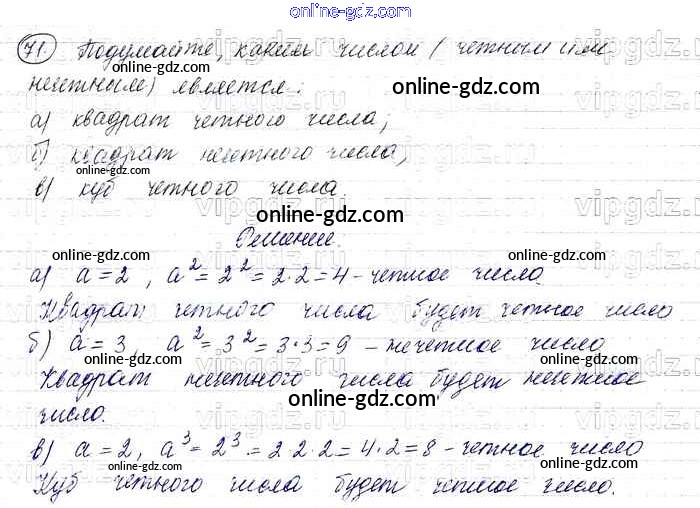 online-gdz.com
71. Подумайте, каким числом (четным или
нечетным) является:
online-gdz.com
а) квадрат четного числа;
б) квадрат нечетного числа,
online-gdz.com
в) куб четного числа.
online-gdz.com
Решение.
а) a = 2, a² = 2² = 2·2 = 4 - четное число.
online-gdz.com
Квадрат четного числа будет четное число
б) a = 3, a² = 3² = 3·3 = 9 - нечетное число
online-gdz.com
Квадрат нечетного числа будет нечетное
online-gdz.com
число.
в) a = 2, a³ = 2³ = 2 2·2 = 4·2 = 8 - четное число
online-gdz.com
Куб четного числа будет четное число.
online-gdz.com